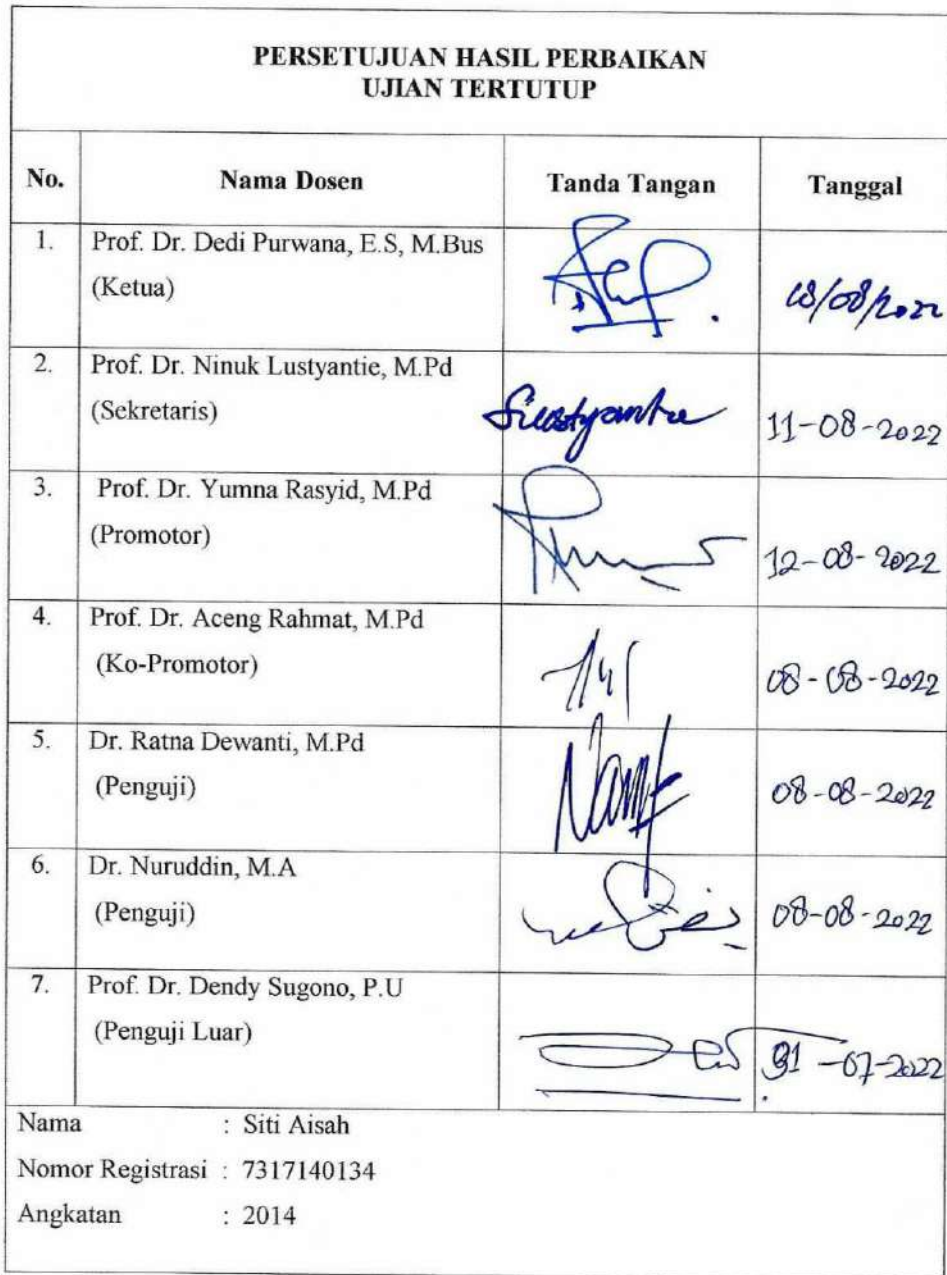 PERSETUJUAN HASIL PERBAIKAN
UJIAN TERTUTUP
No. Nama Dosen Tanda Tangan Tanggal
1. Prof. Dr. Dedi Purwana, E.S, M.Bus
(Ketua)
/08/2022
2. Prof. Dr. Ninuk Lustyantie, M.Pd
(Sekretaris)
11-08-2022
3. Prof. Dr. Yumna Rasyid, M.Pd
(Promotor)
12-08-2022
4. Prof. Dr. Aceng Rahmat, M.Pd
(Ko-Promotor)
08-08-2022
5. Dr. Ratna Dewanti, M.Pd
(Penguji)
08-08-2022
6. Dr. Nuruddin, M.A
(Penguji)
08-08-2022
7. Prof. Dr. Dendy Sugono, P.U
(Penguji Luar)
-07-2022
Nama : Siti Aisah
Nomor Registrasi : 7317140134
Angkatan : 2014